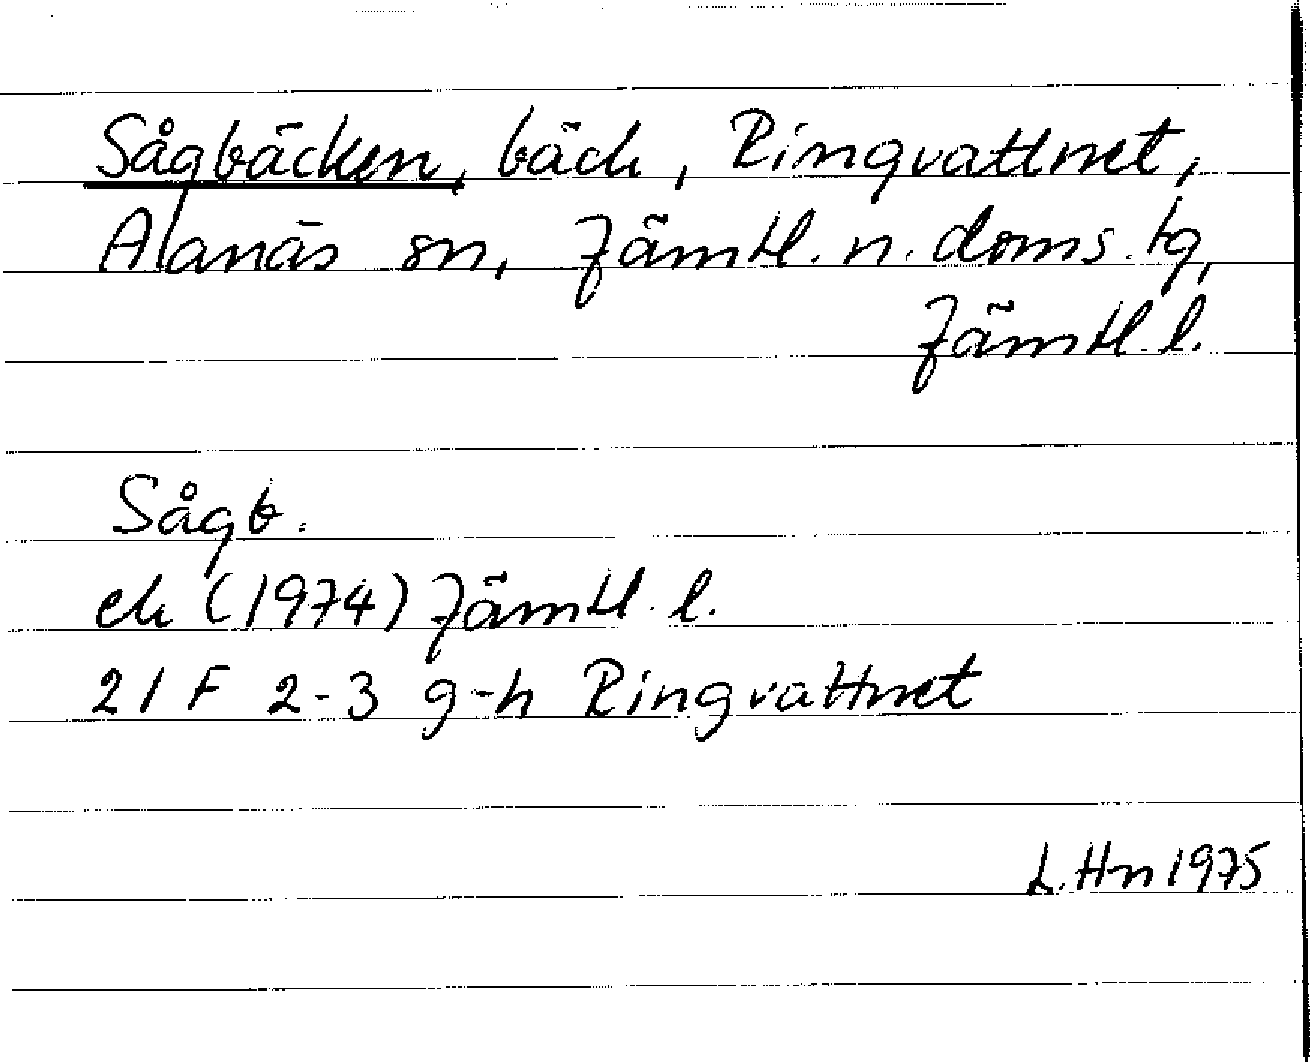 Sågbäcken, bäck, Ringvattnet,
Alanäs sn, Jämtl. n. doms. tg,
Jämtl. l.
Sågb.
ek (1974) Jämtl. l.
21 F 2-3 g-h Ringvattnet
L. Hn 1975